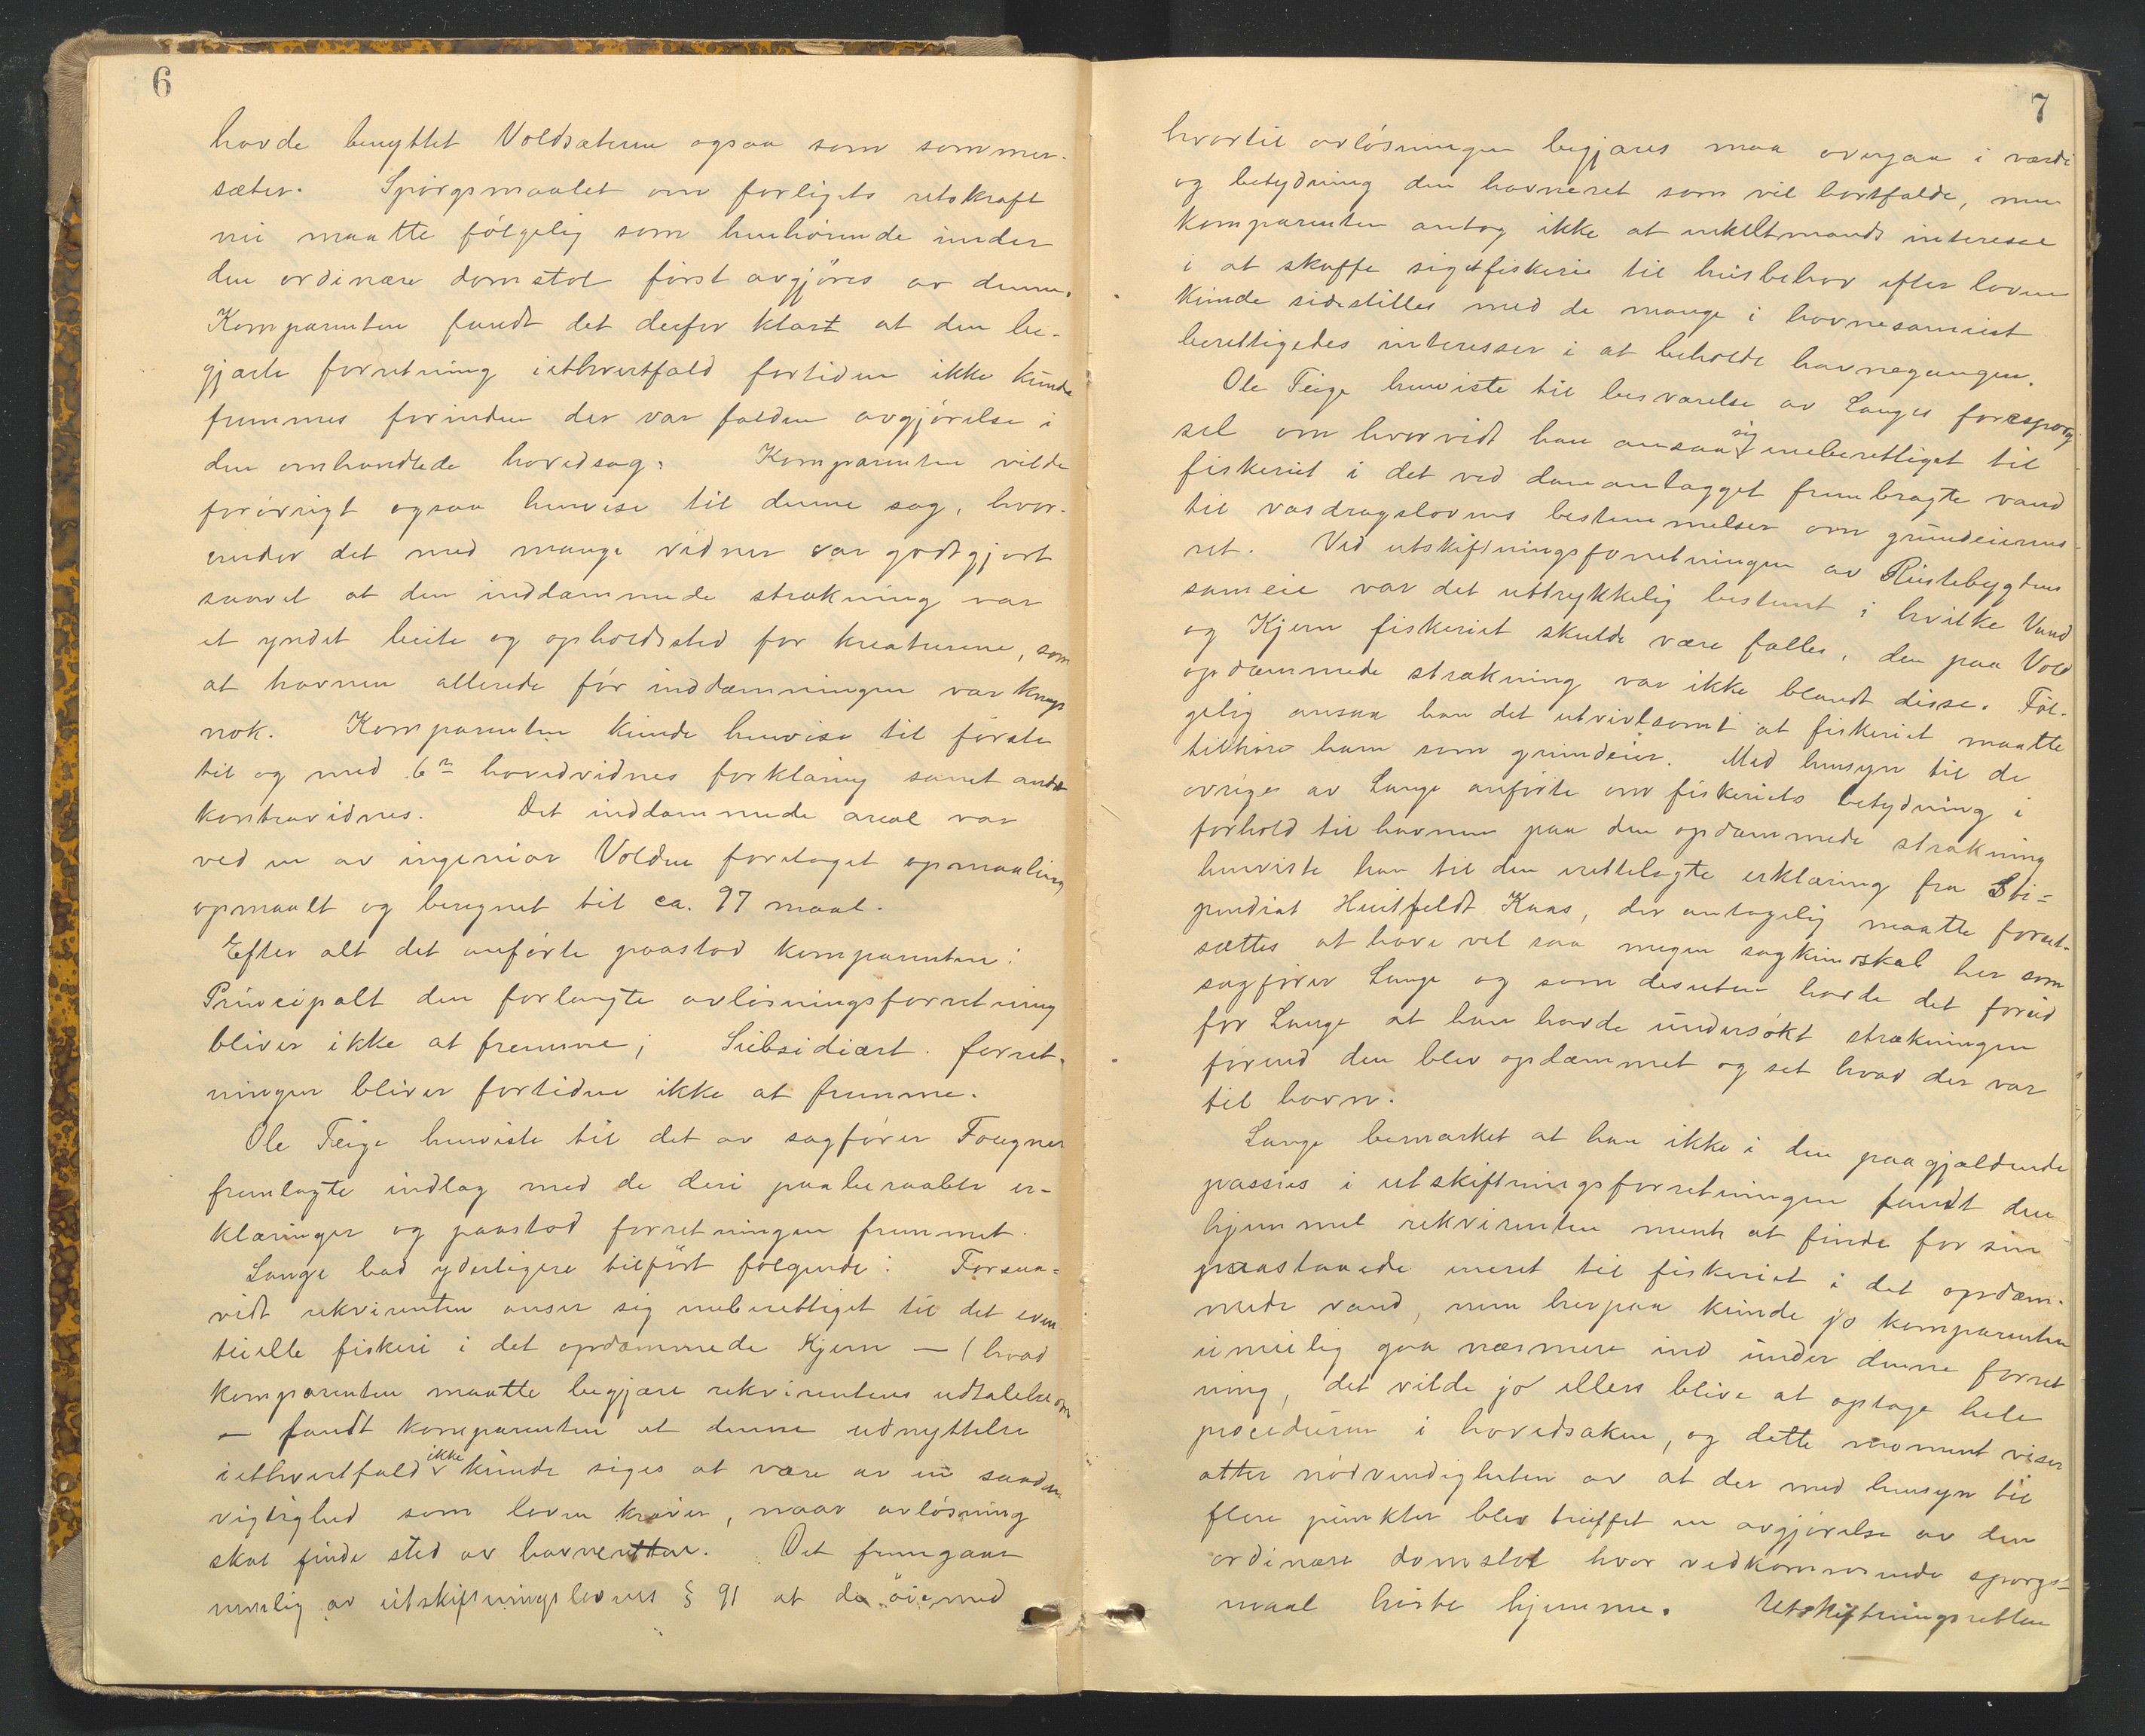 6
havde benyttet Voldsæterne ogsaa som sommer-
sæter. Spörgsmaalet om forligets retskraft
nu maatte fölgelig som henhörende under
den ordinære domstol först avgjöres av denne.
Komparenten fandt det derfor klart at den be-
gjærte forretning iethvertfald fortiden ikke kunde
fremmes forinden der var falden avgjörelse i
den omhandlede hovedsag. Komparenten vilde
forövrigt ogsaa henvise til denne sag, hvor-
under det med mange vidner var godtgjort
saavel at den inddæmmede strækning var
et yndet beite og opholdssted for kreaturene, som
at havnen allerede för inddæmningen var knap
nok. Komparenten kunde henvise til förste
til og med 6te hovedvidnes forklaring samt andet
kontravidnes. Det inddæmmede areal var
ved en av ingeniör Volden foretaget opmaaling
opmaalt og beregnet til ca. 97 maal.
Efter alt det anförte paastod komparenten:
Principalt den forlangte avlösningsforretning
bliver ikke at fremme; Subsidiært. forret-
ningen bliver fortiden ikke at fremme.
Ole Teige henviste til det av sagförer Fougner
fremlagte indlæg med de deri paaberaabte er-
klæringer og paastod forretningen fremmet.
Lange bad yderligere tilfört fölgende: Forsaa-
vidt rekvirenten anser sig eneberettiget til det even
tuelle fiskeri i det opdæmmede Kjern — (hvad
komparenten maatte begjære rekvirentens udtalelse om
— fandt komparenten at denne udnyttelse
iethvertfald ikke kunde siges at være av en saadan
vigtighed som loven kræver, naar avlösning
skal finde sted av havneretten. Det fremgaar
nemlig av utskiftningslovens § 91 at de öiemed
7
hvortil avlösningen begjæres maa overgaa i værdi
og betydning den havneret som vil bortfalde, men
komparenten antog ikke at enkeltmands interesse
i at skaffe sig et fiskeri til husbehov efter loven
kunde sidestilles med de mange i havnesameiet
berettigedes interesser i at beholde havnegangen.
Ole Teige henviste til besvarelse av Langes forespörg
sel om hvorvidt han ansaa sig eneberettiget til
fiskeriet i det ved damanlægget frembragte vand
til vasdragslovens bestemmelser om grundeierens
ret. Ved utskiftningsforretningen av Rustebygdens
sameie var det uttrykkelig bestemt i hvilke Vand
og Kjern fiskeriet skulde være fælles, den paa Vold
opdæmmede strækning var ikke blandt disse. Föl-
gelig ansaa han det utvivlsomt at fiskeriet maatte
tilhöre ham som grundeier. Med hensyn til de
övriges av Lange anförte om fiskeriets betydning i
forhold til havnen paa den opdæmmede strækning
henviste han til den rettelagte erklæring fra Sti-
pendiat Huitfeldt Kaas, der antagelig maatte forut-
sættes at have vel saa megen sagkundskab her som
sagförer Lange og som desuten havde det forud
for Lange at han havde undersökt strækningen
förend den blev opdæmmet og set hvad der var
til havn.
Lange bemærket at han ikke i den paagjældende
passus i utskiftningsforretningen fandt den
hjemmel rekvirenten mente at finde for sin
paastaaede eneret til fiskeriet i det opdæm-
mede vand, men herpaa kunde jo komparenten
umulig gaa nærmere ind under denne forret
ning, det vilde jo ellers blive at optage hele
proceduren i hovedsaken, og dette moment viser
atter nödvendigheten av at der med hensyn til
flere punkter blev truffet en avgjörelse av den
ordinære domstol hvor vedkommende spörgs-
maal hörte hjemme. Utskiftningsretten